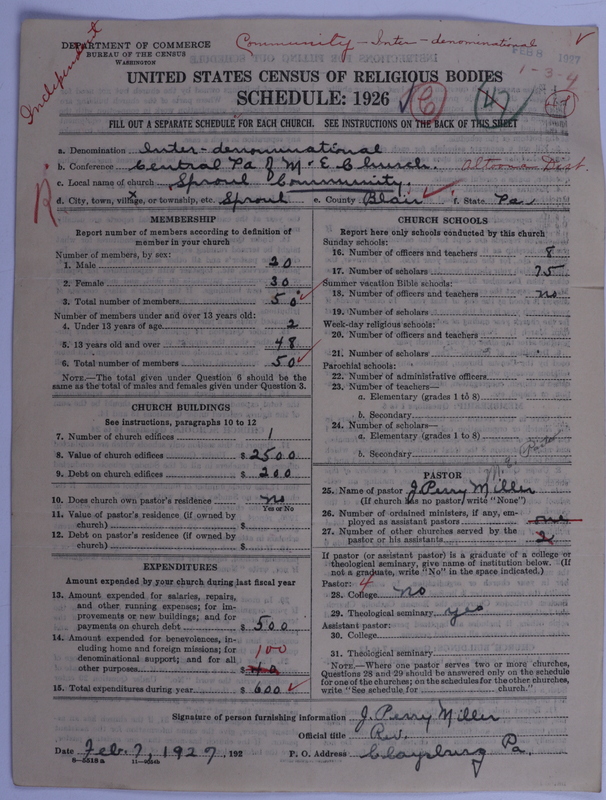 DEPARTMENT OF COMMERCE
BUREAU OF THE CENSUS
WASHINGTON
Independent
Community - Inter - denominational
FEB 8 1927
1-3-4
UNITED STATES CENSUS OF RELIGIOUS BODIES
SCHEDULE: 1926
FILL OUT A SEPARATE SCHEDULE FOR EACH CHURCH. SEE INSTRUCTIONS ON THE BACK OF THIS SHEET
a. Denomination Inter-denominational
b. Conference Central Pa of M.E. Church. Altoona Dist.
c. Local name of church Sproul Community.
d. City, town, village, or township, etc. Sproul e. County Blair f. State Pa.
R
MEMBERSHIP
Report number of members according to definition of
member in your church
Number of members, by sex:
1. Male 20
2. Female 30
3. Total number of members 50
Number of members under and over 13 years old:
4. Under 13 years of age 2
5. 13 years old and over 48
6. Total number of members 50
NOTE.—The total given under Question 6 should be the
same as the total of males and females given under Question 3.
CHURCH BUILDINGS
See instructions, paragraphs 10 to 12
7. Number of church edifices 1
8. Value of church edifices $ 2500
9. Debt on church edifices $ 200
10. Does church own pastor's residence No
Yes or No
11. Value of pastor's residence (if owned by
church) $
12. Debt on pastor's residence (if owned by
church) $
EXPENDITURES
Amount expended by your church during last fiscal year
13. Amount expended for salaries, repairs,
and other running expenses; for im-
provements or new buildings; and for
payments on church debt $ 500
14. Amount expended for benevolences, in-
cluding home and foreign missions; for
denominational support; and for all
other purposes $ 100
15. Total expenditures during year $ 600
CHURCH SCHOOLS
Report here only schools conducted by this church
Sunday schools:
16. Number of officers and teachers 8
17. Number of scholars 75
Summer vacation Bible schools:
18. Number of officers and teachers no
19. Number of scholars
Week-day religious schools:
20. Number of officers and teachers
21. Number of scholars
Parochial schools:
22. Number of administrative officers
23. Number of teachers—
a. Elementary (grades 1 to 8)
b. Secondary
24. Number of scholars—
a. Elementary (grades 1 to 8)
b. Secondary
PASTOR
M.E. Pastor
25. Name of pastor J. Perry Miller
(If church has no pastor, write "None")
26. Number of ordained ministers, if any, em-
ployed as assistant pastors one
27. Number of other churches served by the
pastor or his assistants 2
If pastor (or assistant pastor) is a graduate of a college or
theological seminary, give name of institution below. (If
not a graduate, write "No" in the space indicated.)
Pastor: 4
28. College No
29. Theological seminary yes
Assistant pastor:
30. College
31. Theological seminary
NOTE.—Where one pastor serves two or more churches,
Questions 28 and 29 should be answered only on the schedule
for one of the churches; on the schedules for the other churches,
write "See schedule for church."
Signature of person furnishing information J. Perry Miller
Official title Rev.
Date Feb. 7, 1927, 192 P. O. Address Claysburg Pa.
8-5518 a